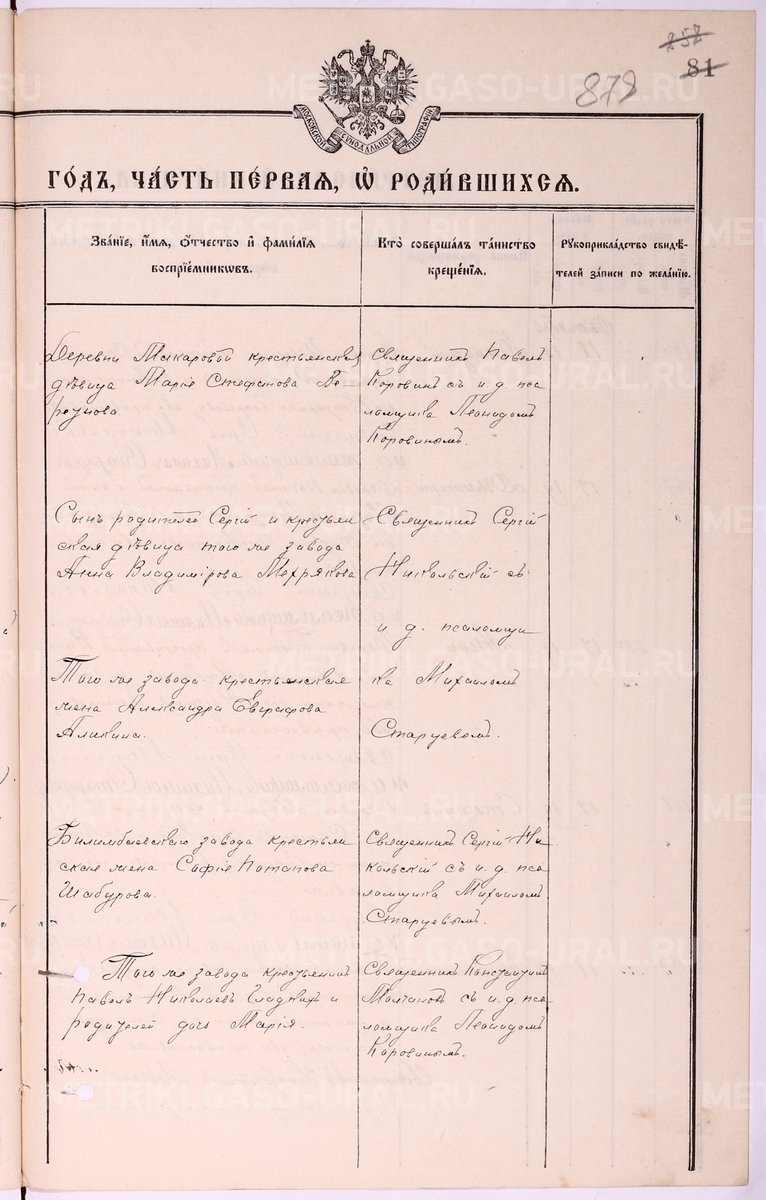 257
81
878
МОСКОВСКОЙ СѴНОДАЛЬНОЙ ТИПОГРАФІИ
METRIKI.GASO-URAL.RU
ГО́ДЪ, ЧА́СТЬ ПЕ́РВАЯ, Ѡ҆ РОДИ́ВШИХСЯ.
Зва́нїе, и҆́мѧ, ѻ҆́тчество и҆ фами́лїѧ
воспрїе́мниковъ.
Кто̀ соверша́лъ та́инство
креще́нїѧ.
Рꙋкоприкла́дство свидѣ́-
телей за́писи по жела́нїю.
Деревни Макаровой крестьянская
дѣвица Марія Стефанова Бе
резнова
Священникъ Павелъ
Коровинъ съ и. д. пса
ломщика Леонидомъ
Коровинымъ.
Сынъ родителей Сергій и крестьян
ская дѣвица того же завода
Анна Владимірова Мехрякова
Священникъ Сергій
Никольскій съ
и д. псаломщи
ка Михаиломъ
Старцевымъ.
Того же завода крестьянская
жена Александра Евграфова
Аликина.
Билимбаевскаго завода крестьян
ская жена Софія Потапова
Шабурова.
Священникъ Сергій Ни
кольскій съ и. д. пса
ломщика Михаиломъ
Старцевымъ.
Того же завода крестьянинъ
Павелъ Николаевъ Гладкихъ и
родителей дочь Марія.
Священникъ Константинъ
Молчановъ съ и. д. пса
ломщика Леонидомъ
Коровинымъ.